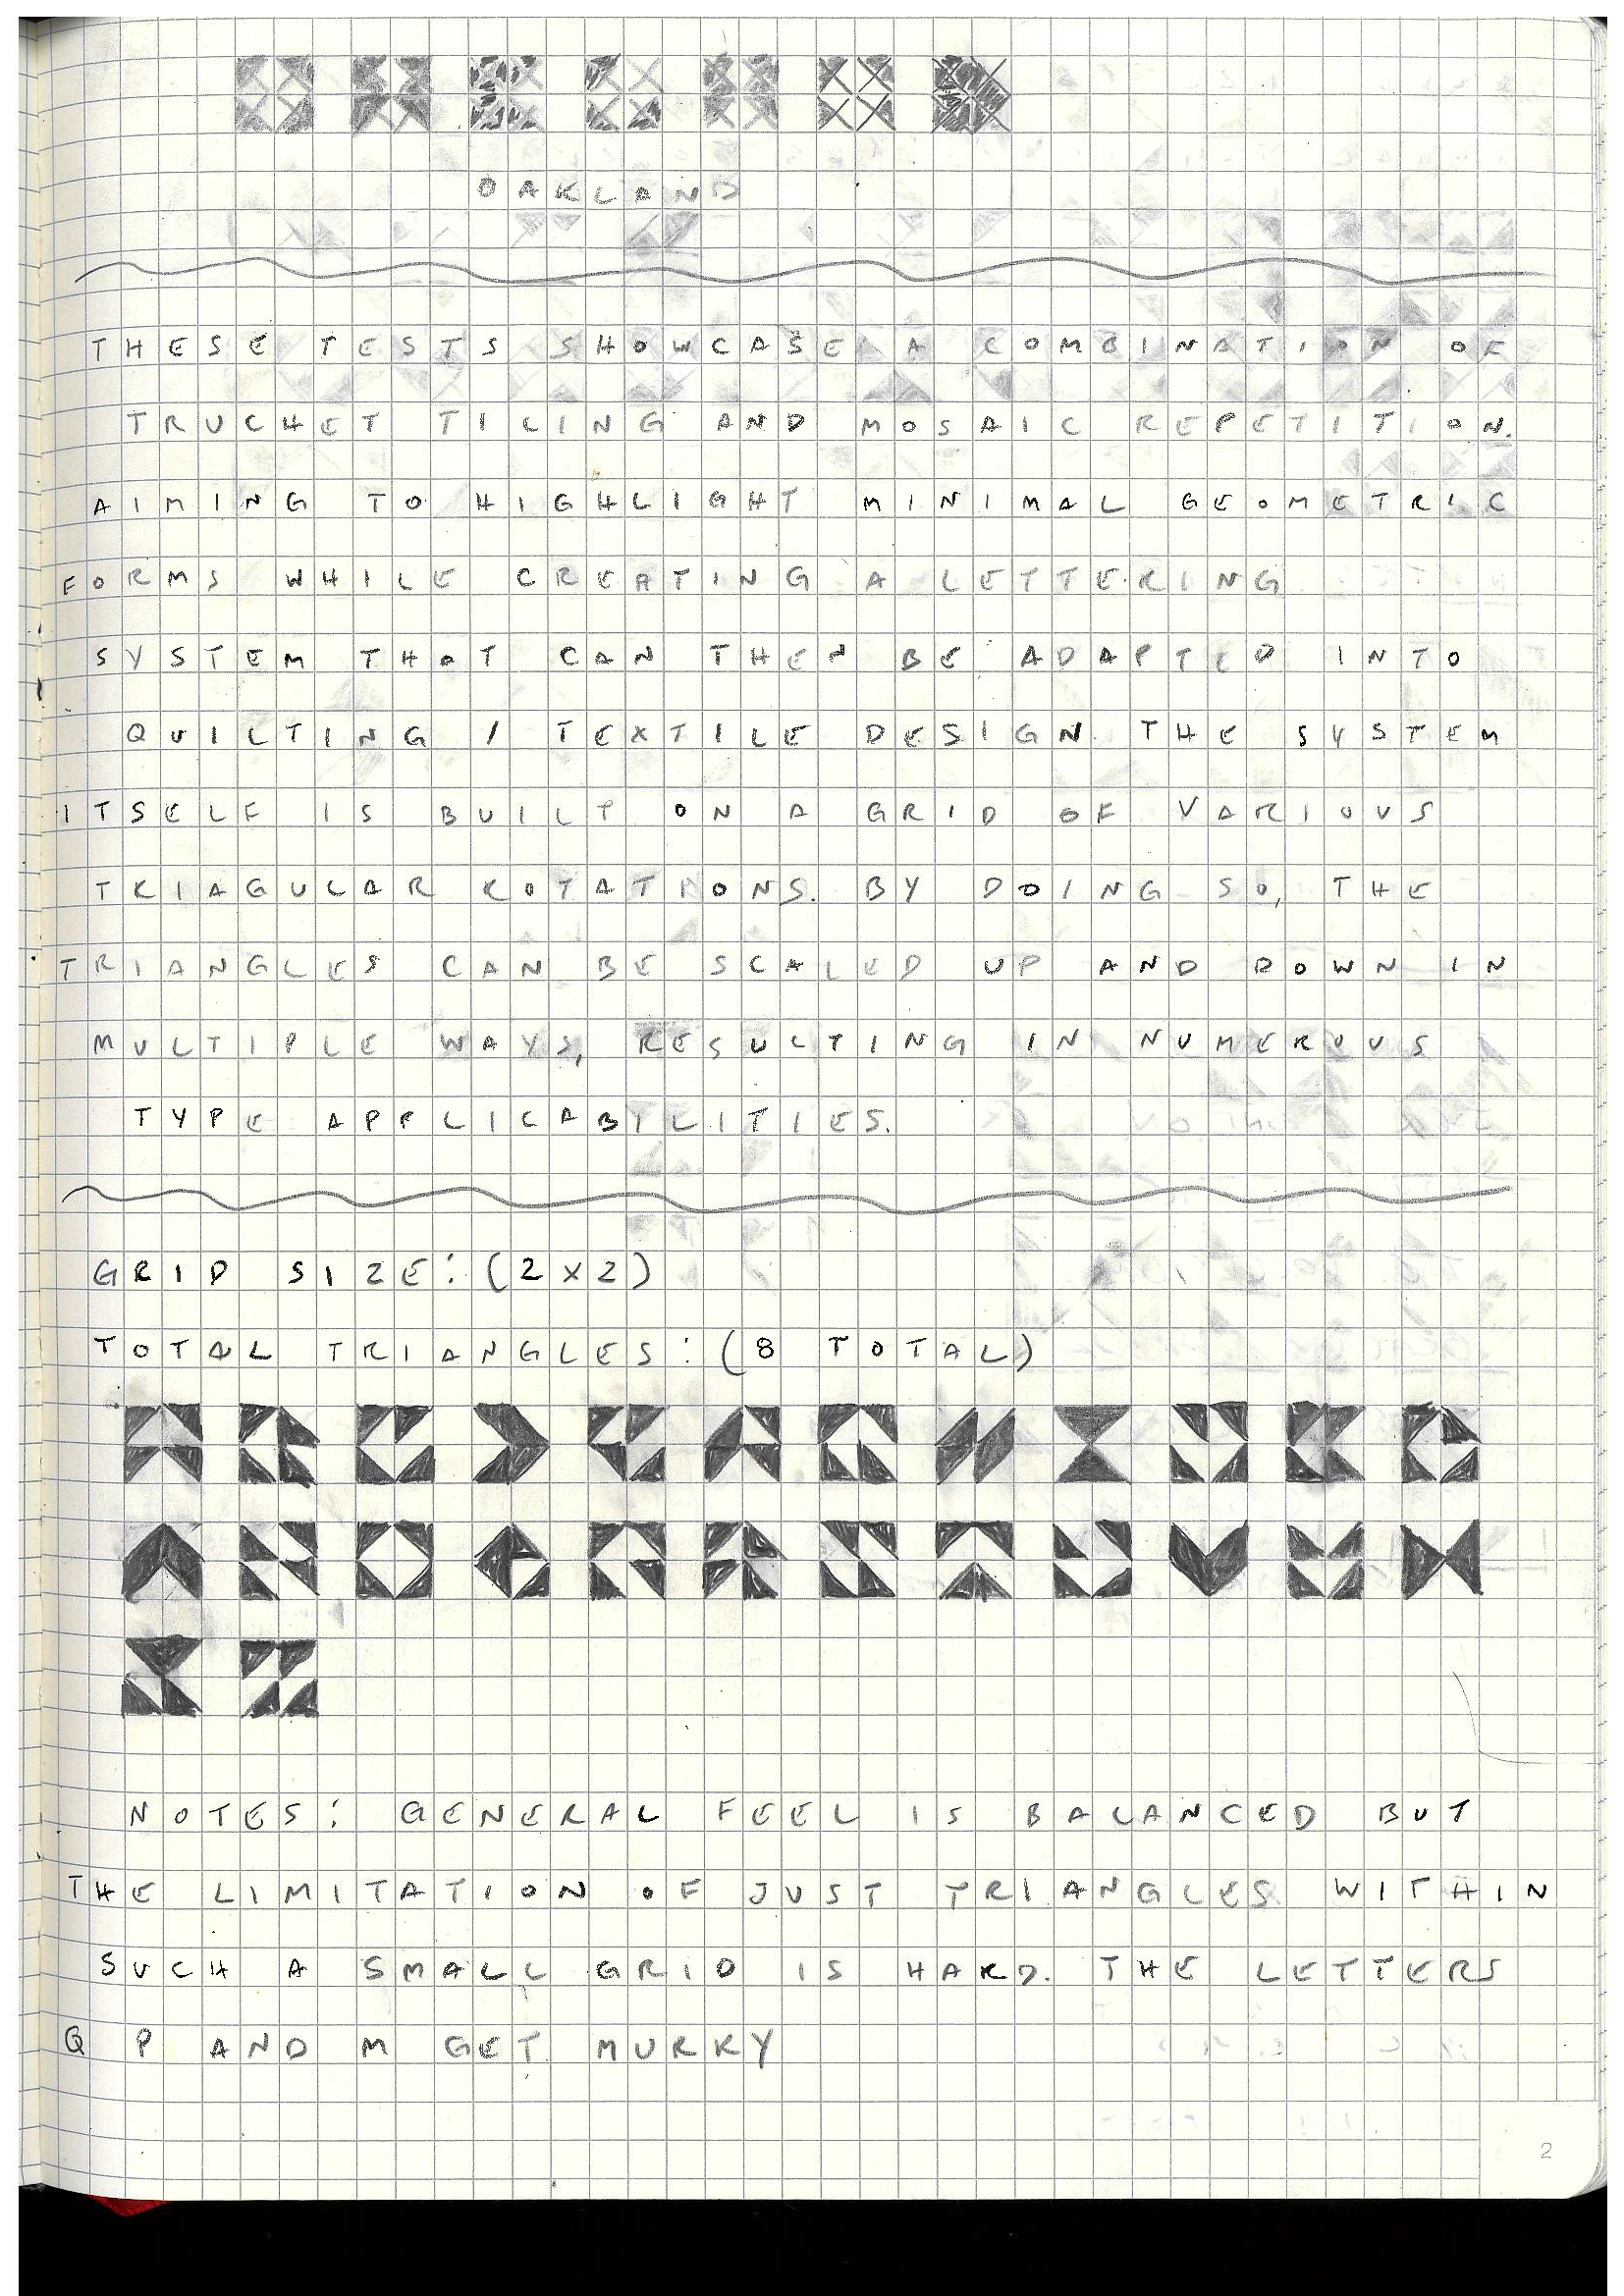 OAKLAND
THESE TESTS SHOWCASE A COMBINATION OF
TRUCHET TILING AND MOSAIC REPETITION.
AIMING TO HIGHLIGHT MINIMAL GEOMETRIC
FORMS WHILE CREATING A LETTERING
SYSTEM THAT CAN THEN BE ADAPTED INTO
QUILTING / TEXTILE DESIGN. THE SYSTEM
ITSELF IS BUILT ON A GRID OF VARIOUS
TRIAGULAR ROTATIONS. BY DOING SO, THE
TRIANGLES CAN BE SCALED UP AND DOWN IN
MULTIPLE WAYS, RESULTING IN NUMEROUS
TYPE APPLICABYLITIES.
GRID SIZE: (2X2)
TOTAL TRIANGLES: (8 TOTAL)
NOTES: GENERAL FEEL IS BALANCED BUT
THE LIMITATION OF JUST TRIANGLES WITHIN
SUCH A SMALL GRID IS HARD. THE LETTERS
Q P AND M GET MURKY
2